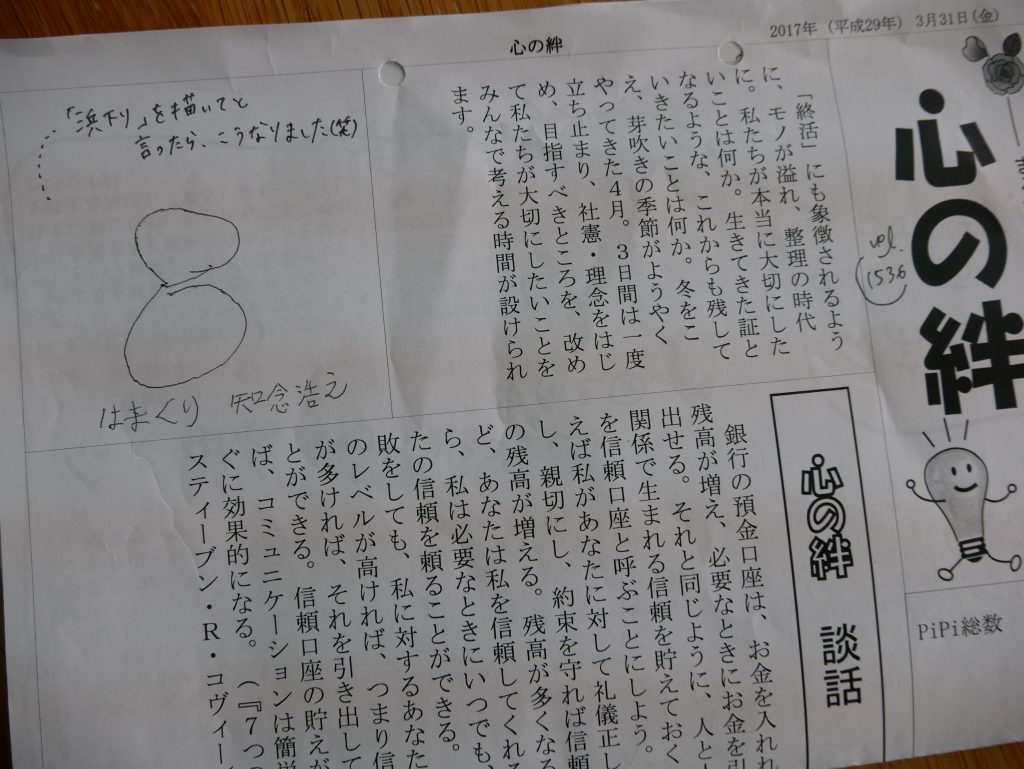 心の絆
2017年（平成29年）3月31日(金)
心の絆
vol.
1536
PiPi総数
「終活」にも象徴されるよう
に、モノが溢れ、整理の時代
に。私たちが本当に大切にした
いことは何か。生きてきた証と
なるような、これからも残して
いきたいことは何か。冬をこ
え、芽吹きの季節がようやく
やってきた４月。３日間は一度
立ち止まり、社憲・理念をはじ
め、目指すべきところを、改め
て私たちが大切にしたいことを
みんなで考える時間が設けられ
ます。
「浜下り」を描いてと
言ったら、こうなりました(笑)
はまぐり 知念浩え
心の絆 談話
銀行の預金口座は、お金を入れれ
残高が増え、必要なときにお金を引
出せる。それと同じように、人と
関係で生まれる信頼を貯えておく
を信頼口座と呼ぶことにしよう。
えば私があなたに対して礼儀正し
し、親切にし、約束を守れば信頼
の残高が増える。残高が多くなる
ど、あなたは私を信頼してくれる
ら、私は必要なときにいつでも、
たの信頼を頼ることができる。
敗をしても、私に対するあなた
のレベルが高ければ、つまり信
が多ければ、それを引き出して
とができる。信頼口座の貯えが
ば、コミュニケーションは簡単
ぐに効果的になる。（『７つの
スティーブン・Ｒ・コヴィー